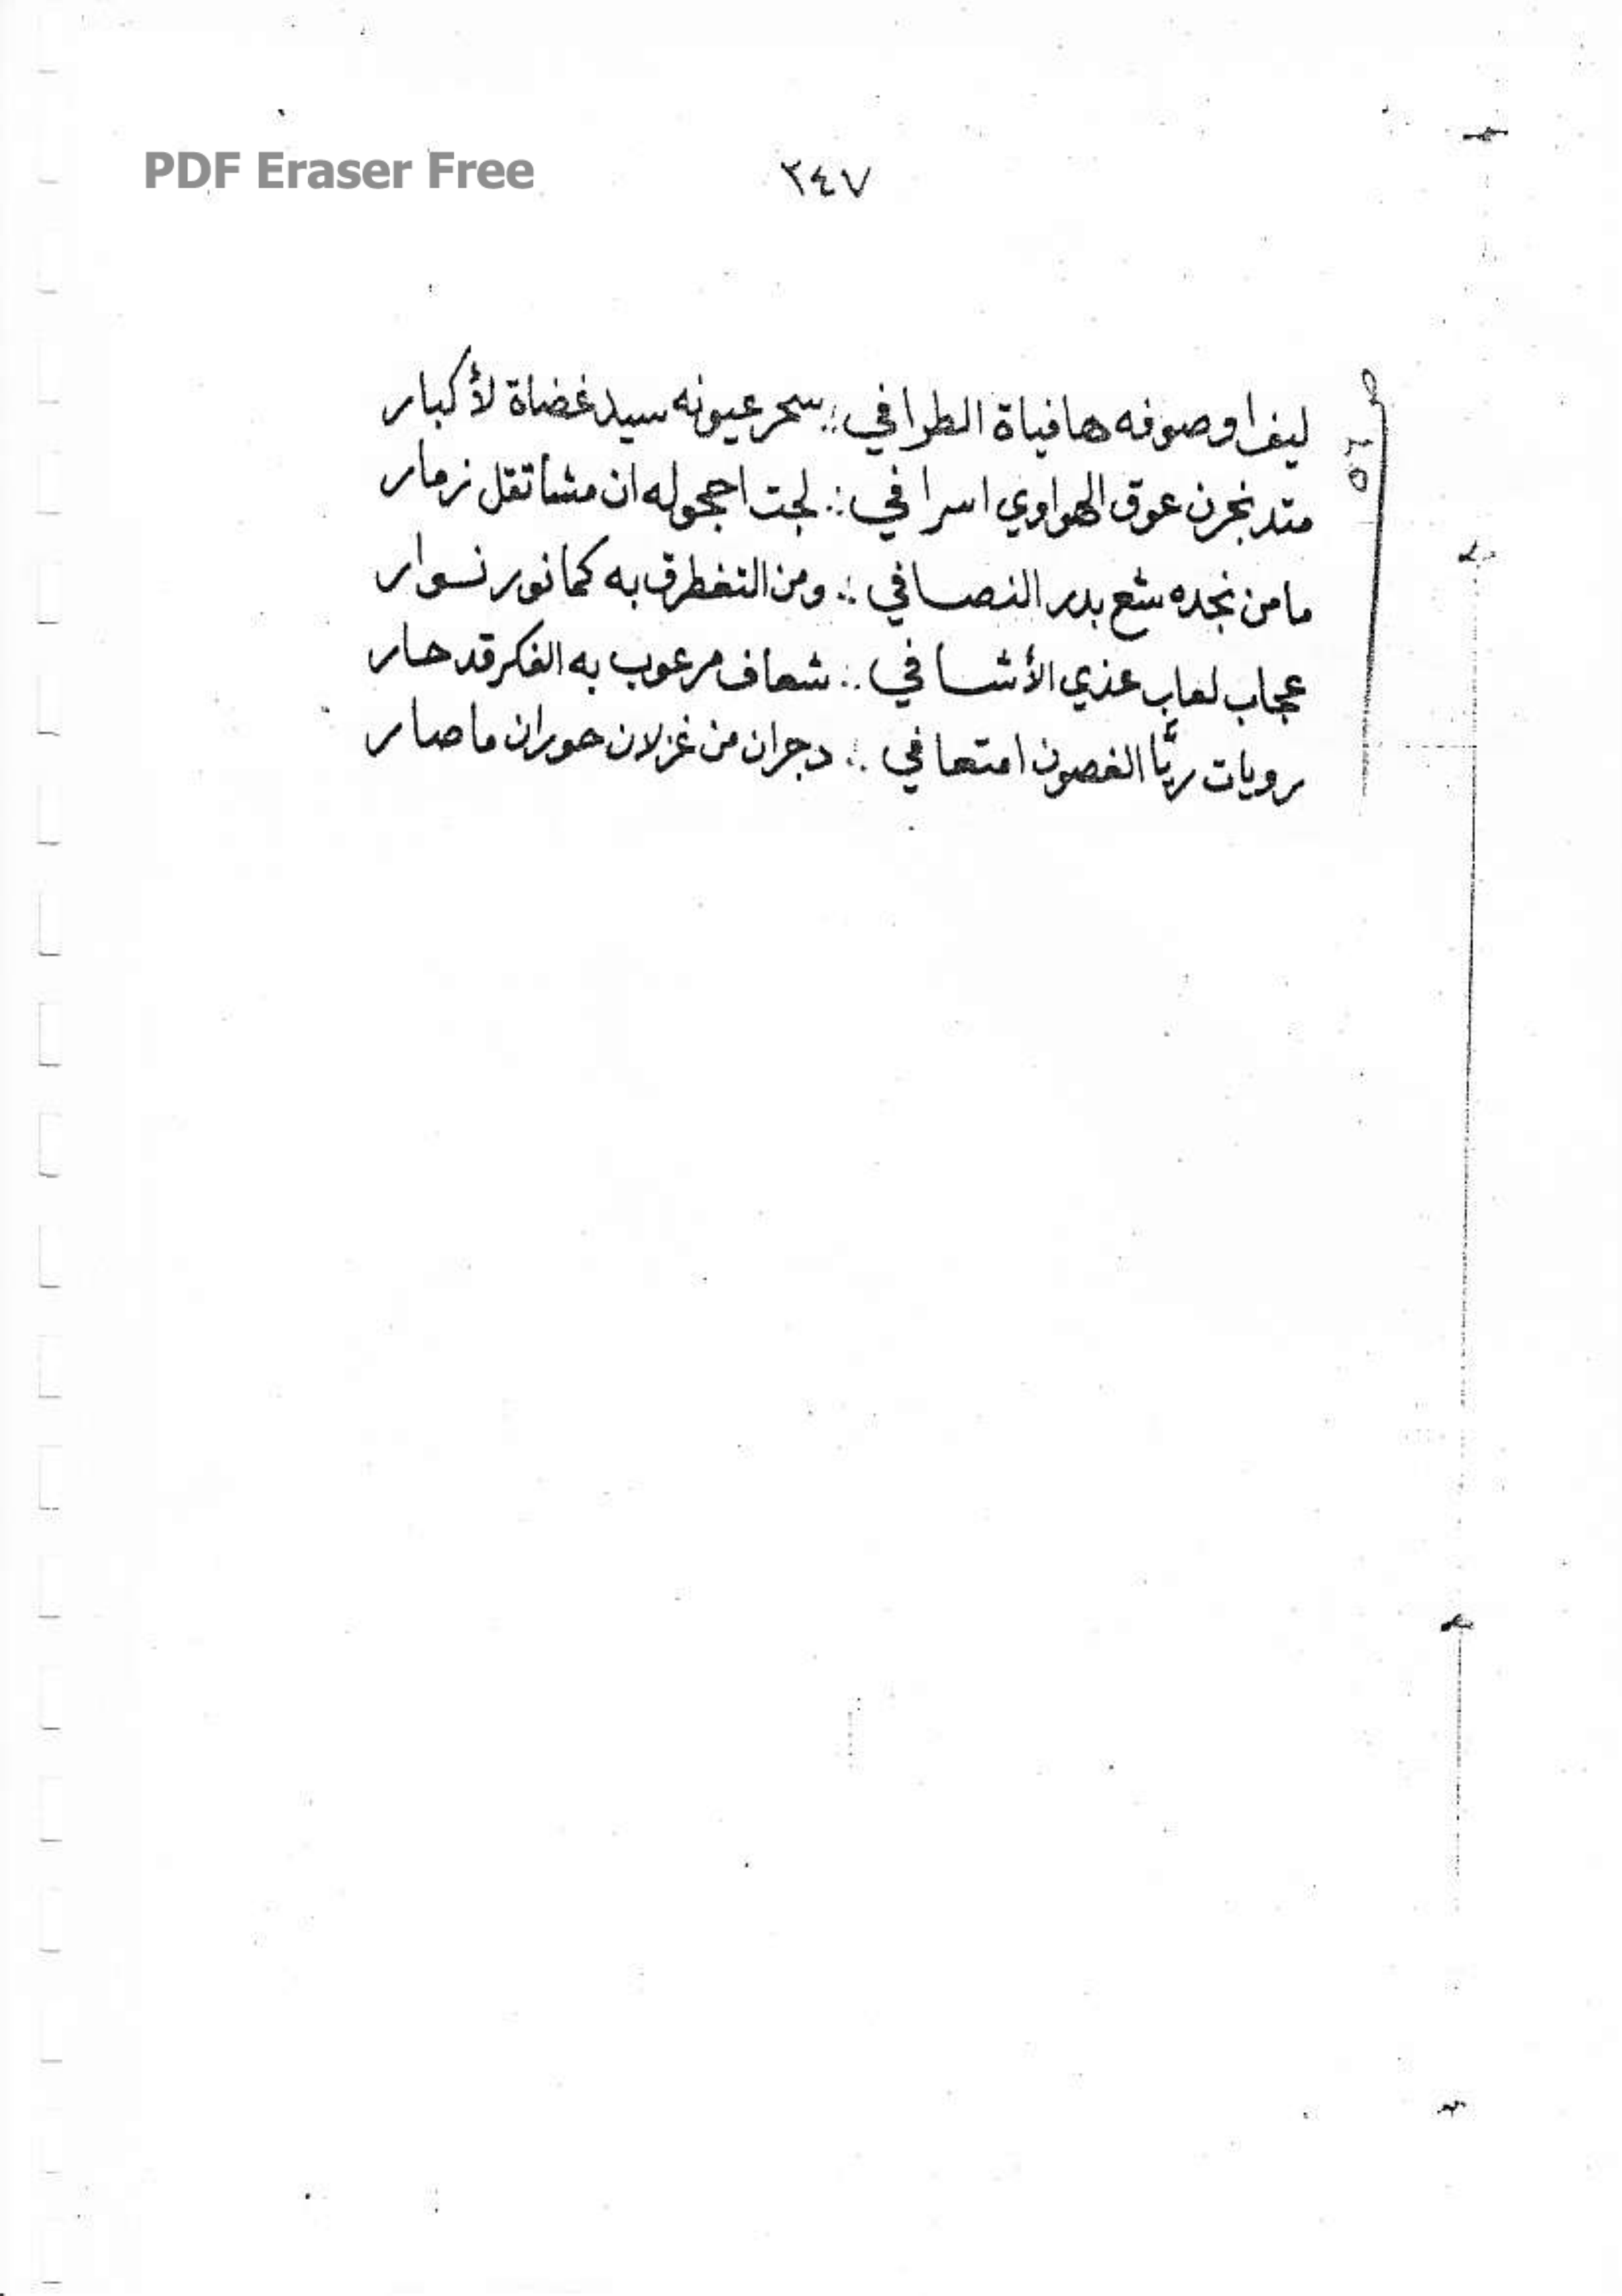 PDF Eraser Free
٢٤٧
ليفرا وصوفه هافياة الطرافي :: سحر عيونه سيد غضاة لأكبار
متد نخرن عوق الهواوي اسرافي :: لجت احجوله ان مشا تقل زمار
مامن نجده شع بدر النصافي :: ومن التغطرق به كما نور نسوار
عجاب لعاب عذي الأشافي :: شعاف مرعوب به الفكر قد حار
رويات ريّا الغصون امتعافي :: دجران من غزلان حوران ما صار